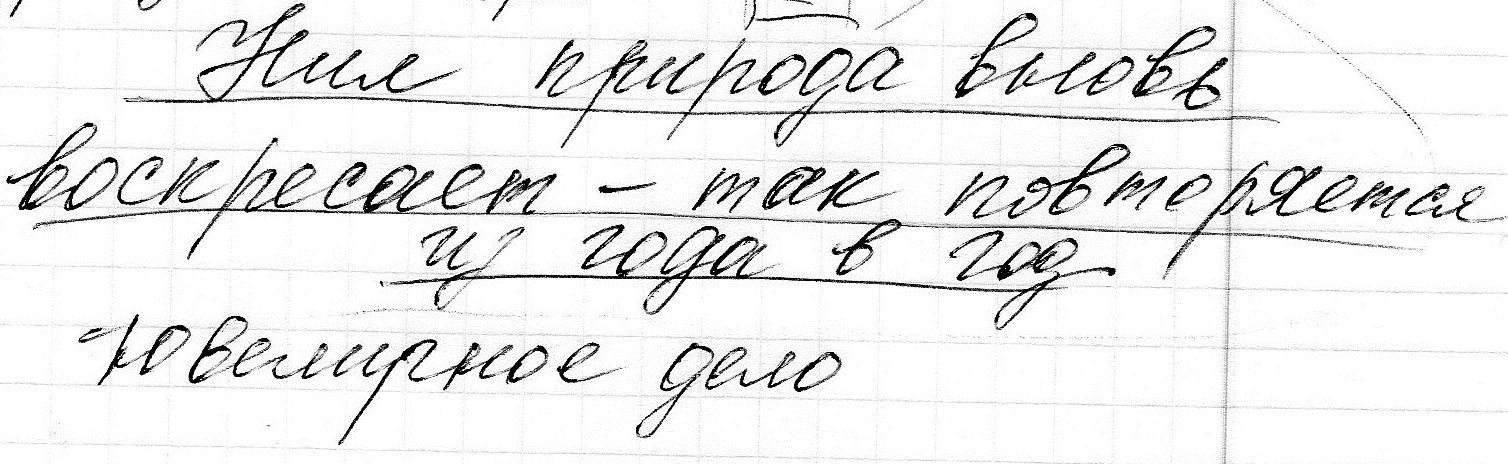 Нил природа вновь
воскресает – так повторяется
из года в год
- Ювелирное дело